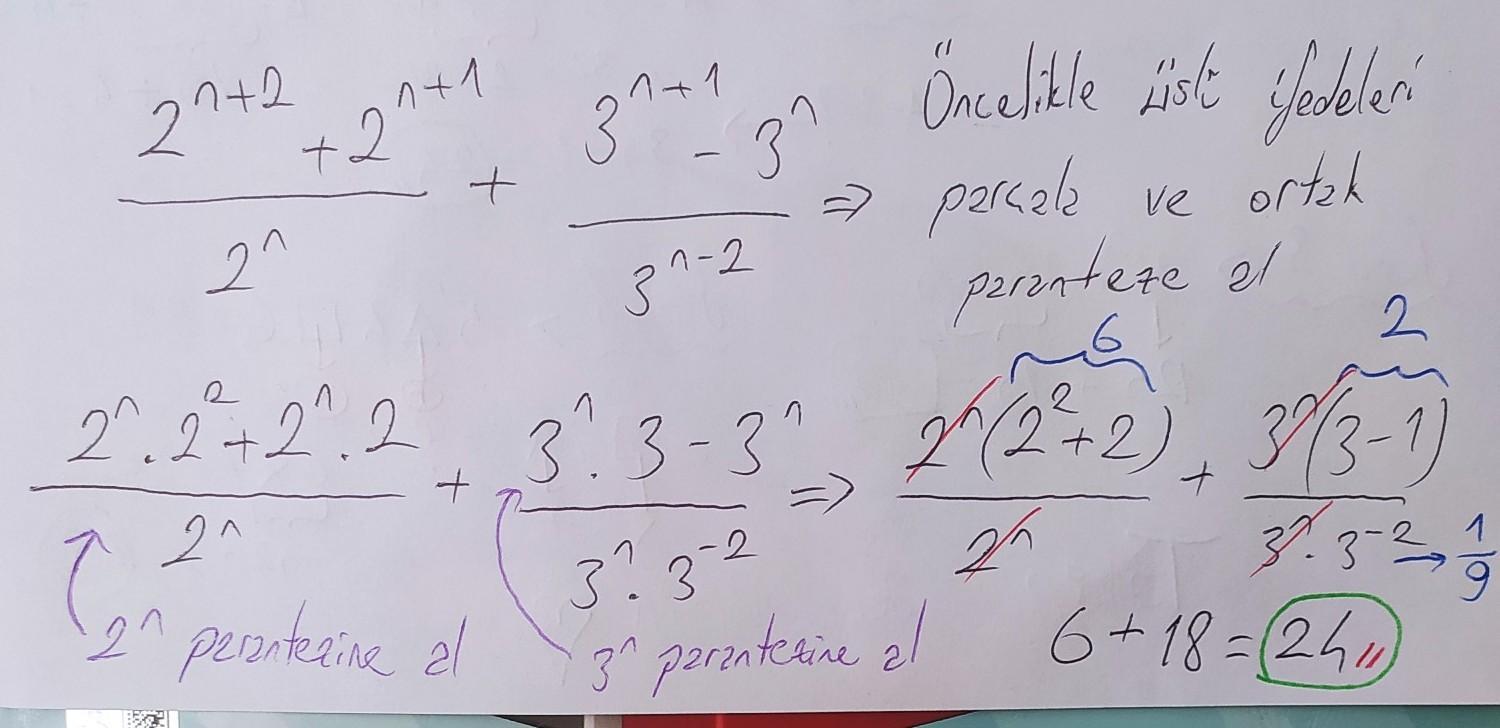 (2^(n+2) + 2^(n+1)) / 2^n + (3^(n+1) - 3^n) / 3^(n-2) ⇒ Öncelikle üslü ifadeleri
parçala ve ortak
paranteze al
(2^n . 2^2 + 2^n . 2) / 2^n + (3^n . 3 - 3^n) / (3^n . 3^-2) ⇒ 2^n (2^2 + 2) / 2^n + 3^n (3 - 1) / (3^n . 3^-2) → 1/9
6
2
2^n parantezine al
3^n parantezine al
6 + 18 = 24 //